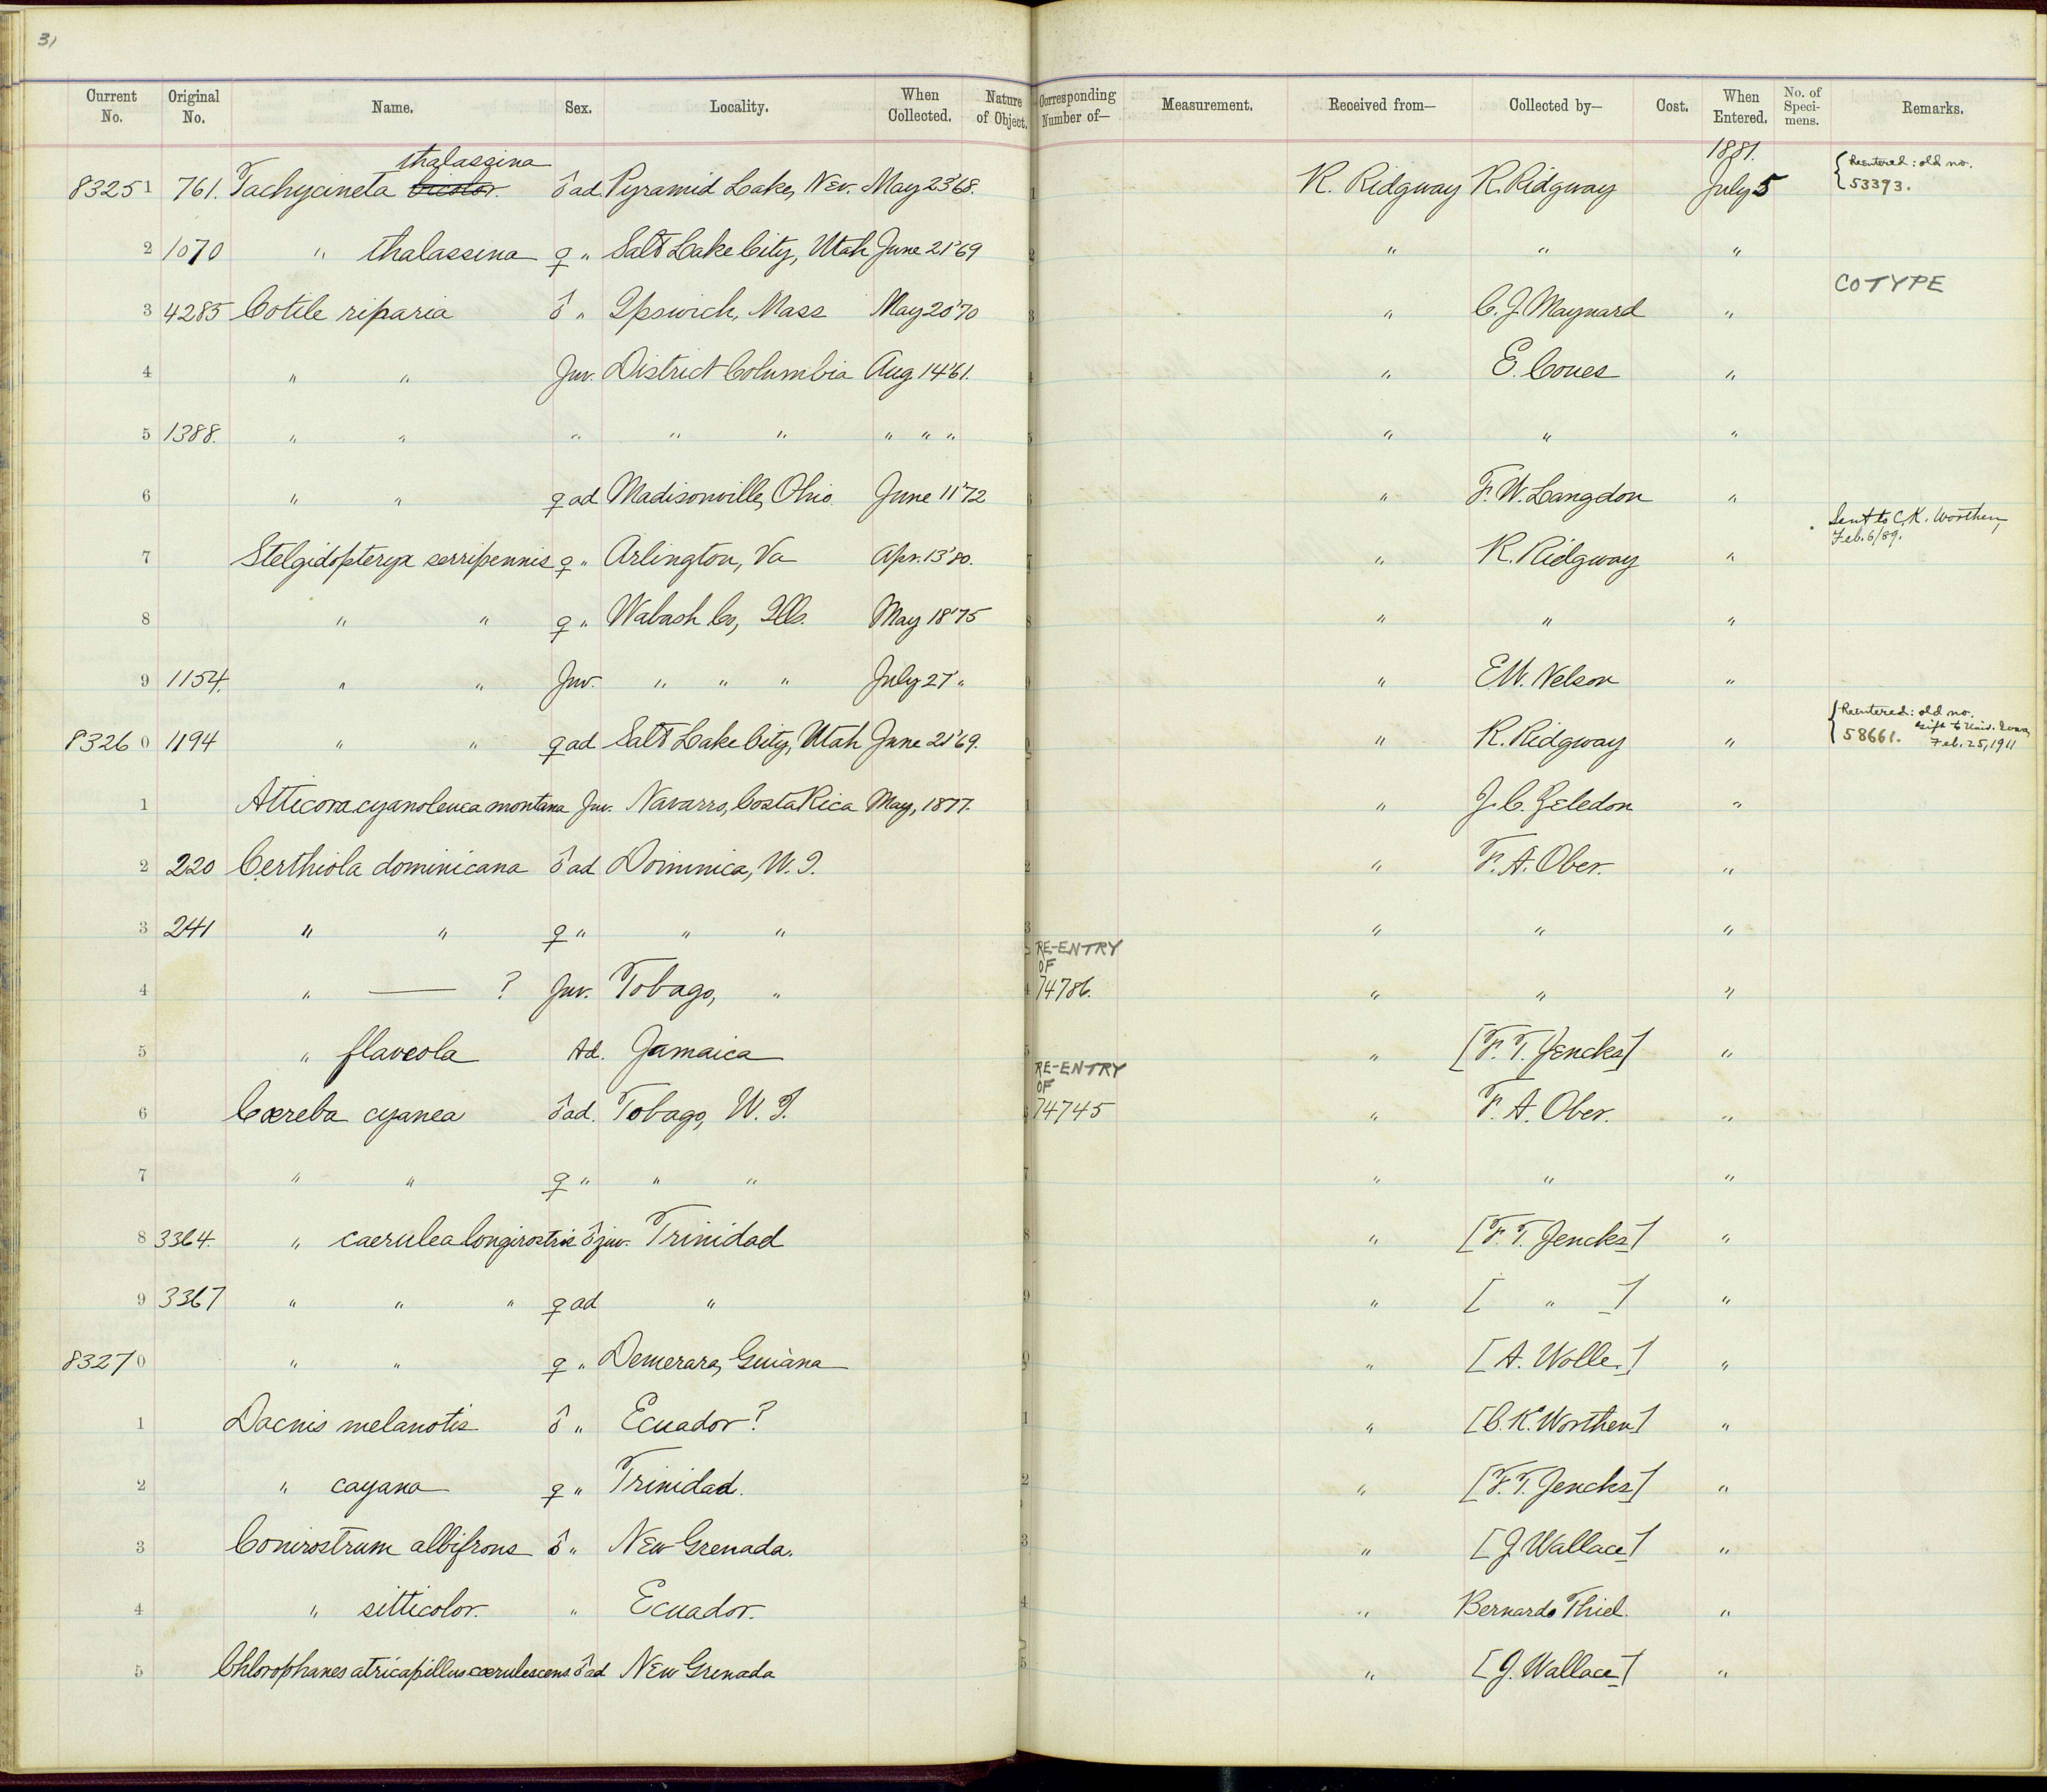 31
Current No. Original No. Name. Sex. Locality. When Collected. Nature of Object. Corresponding Number of— Measurement. Received from— Collected by— Cost. When Entered. No. of Specimens. Remarks.
thalassina 1881. { Reentered: old no.
83251 761. Tachycineta bicolor. ♂ ad. Pyramid Lake, Nev. May 23'68. 1 R. Ridgway R. Ridgway July 5 53393.
2 1070 " thalassina ♀ " Salt Lake City, Utah June 21'69 2 " " "
COTYPE
3 4285 Cotile riparia ♂ " Ipswich, Mass May 20'70 3 " C. J. Maynard "
4 " " Juv. District Columbia Aug 14'61. 4 " E. Coues "
5 1388. " " " " " " " " 5 " " "
6 " " ♀ ad Madisonville, Ohio. June 11'72 6 " F. W. Langdon "
Sent to C. K. Worthen, Feb. 6/89.
7 Stelgidopteryx serripennis ♀ " Arlington, Va Apr. 13'80. 7 " R. Ridgway "
8 " " ♀ " Wabash Co, Ills. May 18'75 8 " " "
9 1154. " " Juv. " " " July 27 " 9 " E. W. Nelson "
{ Reentered: old no.
83260 1194 " " ♀ ad Salt Lake City, Utah June 21'69. 0 " R. Ridgway " 58661. Gift to Univ. Iowa, Feb. 25, 1911
1 Atticora cyanoleuca montana Juv. Navarro, Costa Rica May, 1877. 1 " J. C. Zeledon "
2 220 Certhiola dominicana ♂ ad Dominica, W. I. 2 " F. A. Ober. "
3 241 " " ♀ " " " 3 " " "
RE-ENTRY OF
4 " — ? Juv. Tobago, " 4 74786. " " "
5 " flaveola Ad. Jamaica 5 " [F. T. Jencks] "
RE-ENTRY OF
6 Cœreba cyanea ♂ ad. Tobago, W. I. 6 74745 " F. A. Ober. "
7 " " ♀ " " " 7 " " "
8 3364. " caerulea longirostris ♂ juv. Trinidad 8 " [F. T. Jencks] "
9 3367 " " " ♀ ad " 9 " [ " ] "
83270 " " ♀ " Demerara, Guiana 0 " [A. Wolle.] "
1 Dacnis melanotis ♂ " Ecuador? 1 " [C. K. Worthen] "
2 " cayana ♀ " Trinidad. 2 " [F. T. Jencks] "
3 Conirostrum albifrons ♂ " New Grenada. 3 " [J. Wallace] "
4 " sitticolor. " Ecuador. 4 " Bernardo Thiel. "
5 Chlorophanes atricapillus cærulescens ♂ ad New Grenada 5 " [J. Wallace] "